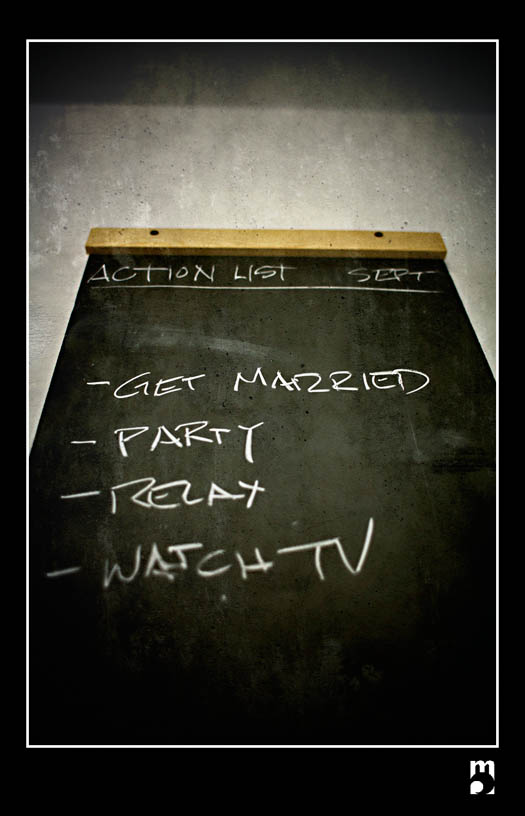 ACTION LIST SEPT
- GET MARRIED
- PARTY
- RELAX
- WATCH TV
m